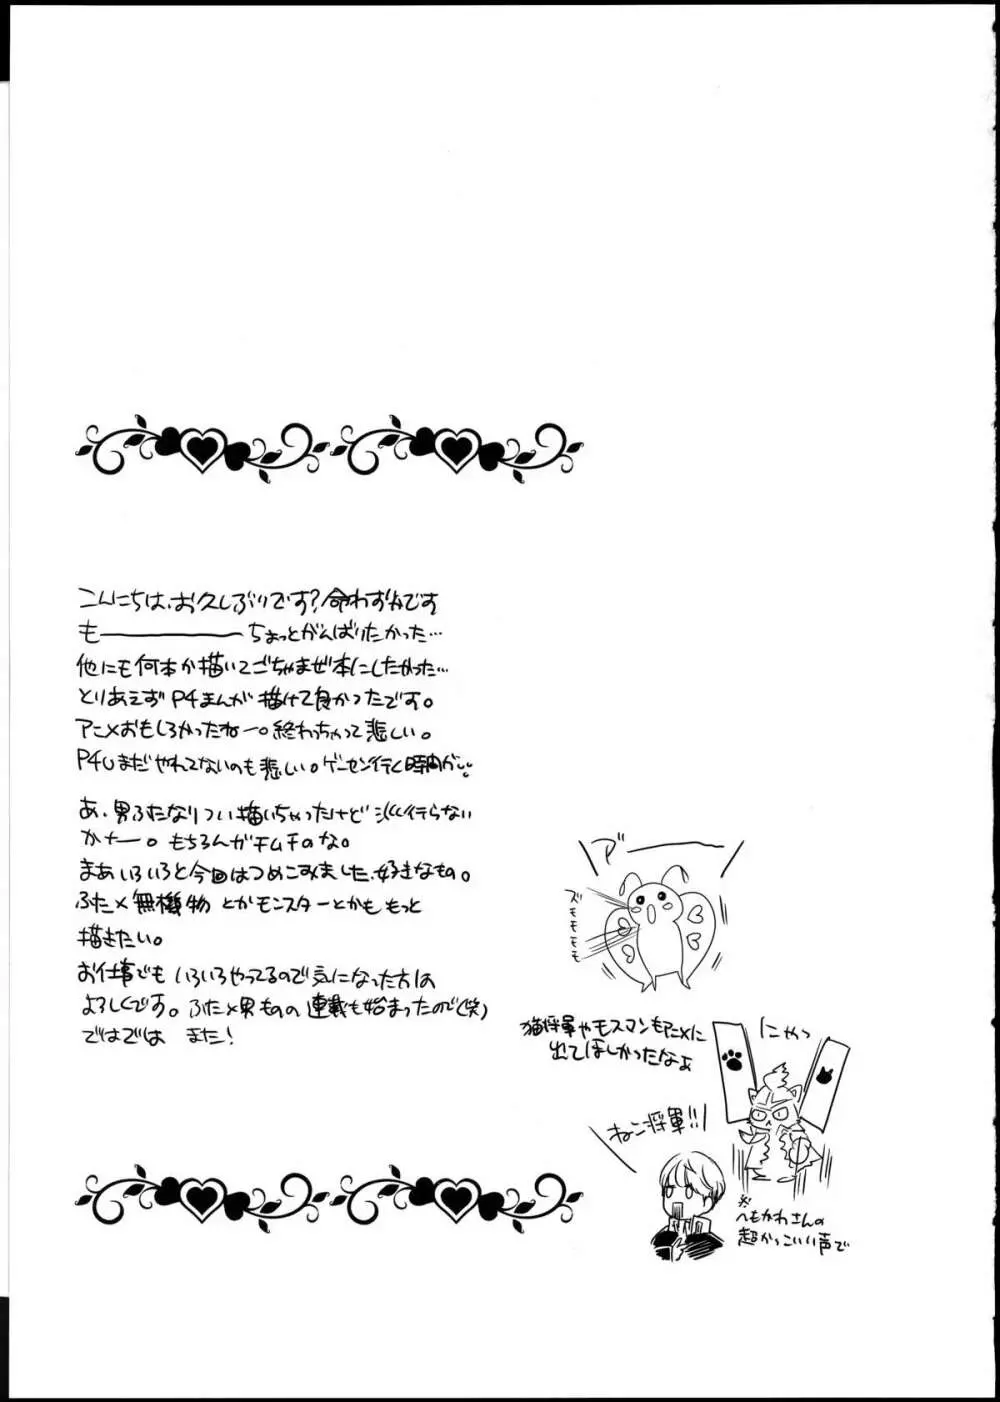 こんにちは、お久しぶりです?命わずかです
も————————ちょっとがんばりたかった…
他にも何本か描いてごちゃまぜ本にしたかった…
とりあえず P4まんが 描けて良かったです。
アニメおもしろかったねー。終わっちゃって悲しい。
P4Uまだやれてないのも悲しい。ゲーセン行く時間が…
あ、男ふたなりつい描いちゃったけど 行らない
かナー。もちろんガチムチのな。
まあいろいろと今回はつめこみました、好きなもの。
ふた×無機物 とかモンスターとかも もっと
描きたい。
お仕事でも いろいろやってるので気になった方は
よろしくです。ふた×男ものの 連載も始まったので(笑)
ではでは また!
ア゛———
ズモモモモ
猫将軍やモスマンもアニメに
出てほしかったなぁ
にゃっ
ねこ将軍!!
※
へもかわさんの
超かっこいい声で